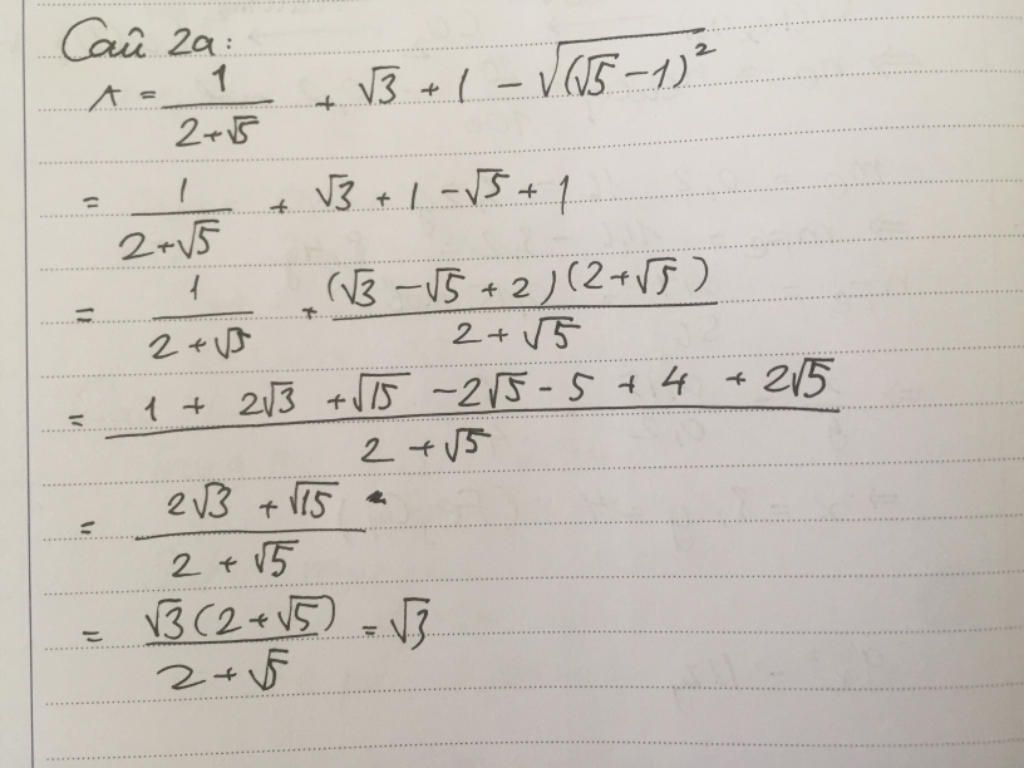 Câu 2a:
A = 1/(2+√5) + √3 + 1 - √((√5 - 1)²)
= 1/(2+√5) + √3 + 1 - √5 + 1
= 1/(2+√5) + ((√3 - √5 + 2)(2+√5))/(2+√5)
= (1 + 2√3 + √15 - 2√5 - 5 + 4 + 2√5)/(2+√5)
= (2√3 + √15)/(2+√5)
= (√3(2+√5))/(2+√5) = √3